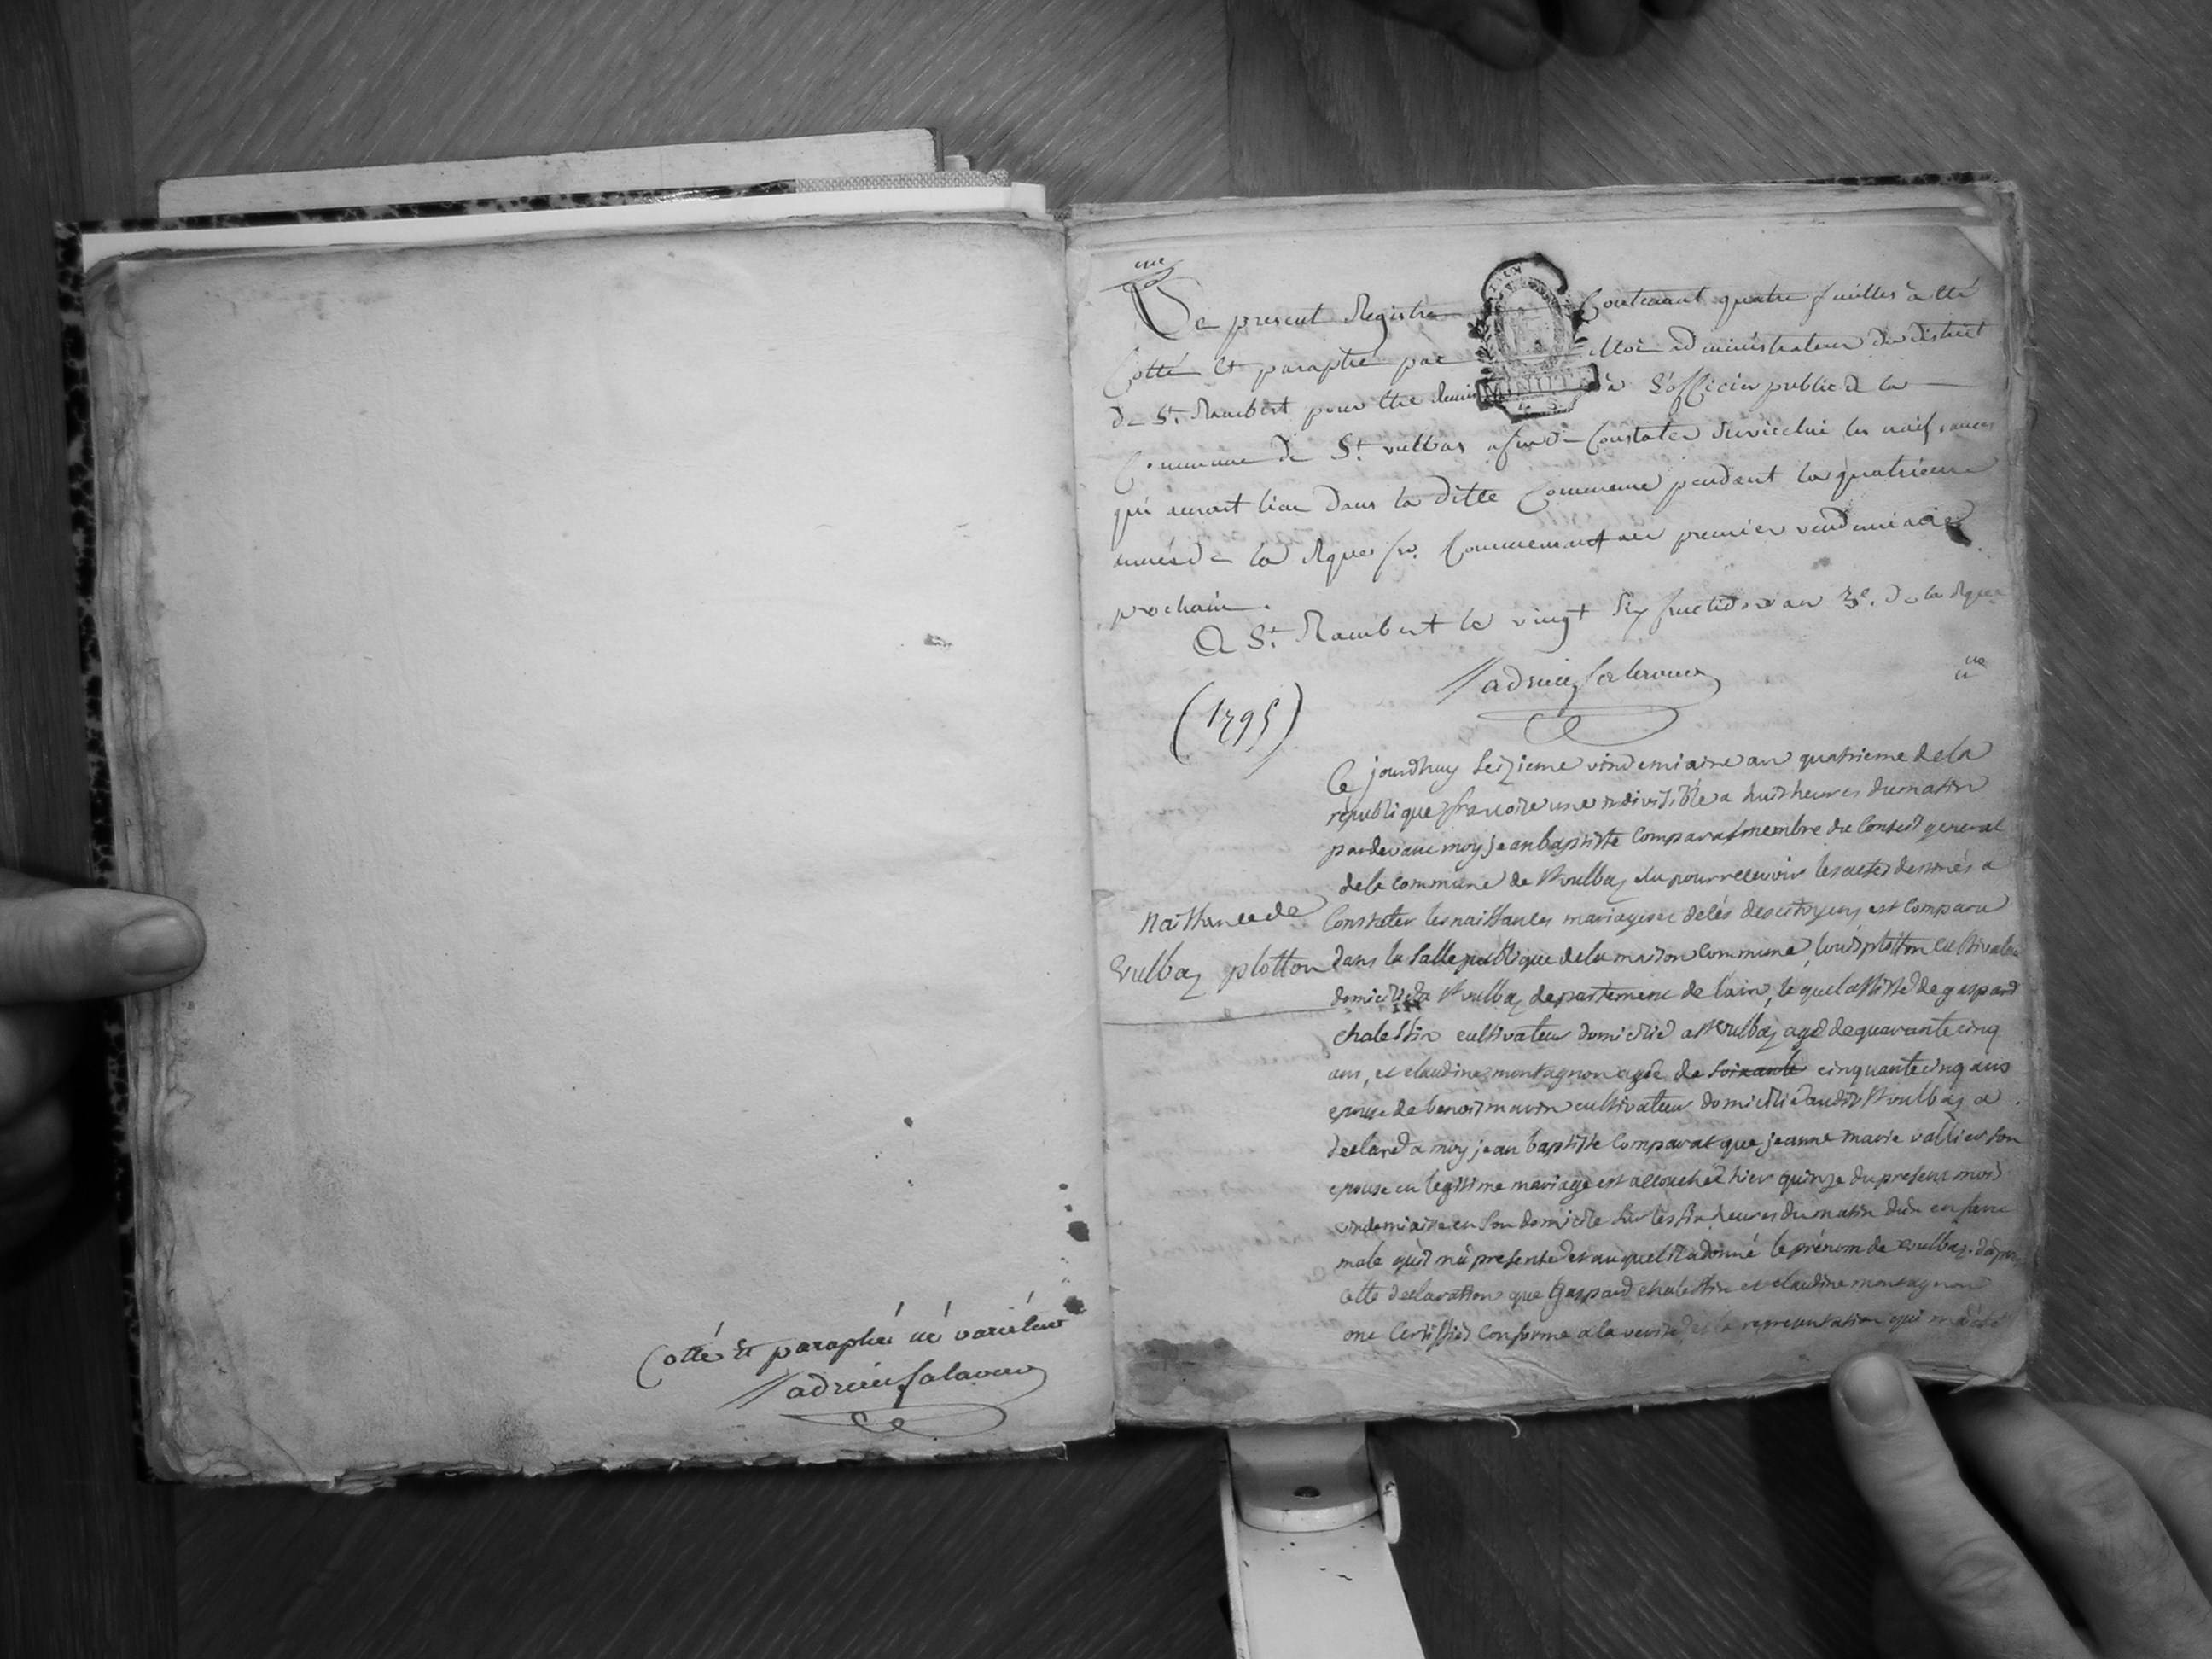 Cotté et paraphé né varietur
une
Le present Registre Contenant quatre feuilles à été
Cotté et paraphé par Moi administrateur du district
de St. Rambert pour etre remis à L'officier public de la
Commune de St vulbas afin de Constater sur icelui les naissances
qui auront lieu dans la ditte Commune pendant la quatrieme
année de la Rque fse. Commencant au premier vendemiaire
prochain.
A St. Rambert le vingt Six fructidor an 3e. de la Rque
une
(1795)
MINUTE
Ce jourdhuy Seizieme vindemiaire an quatrieme de la
republique francoise une indivisible a huit heures du matin
pardevant moy jean baptiste Comparat membre du Conseil general
de la commune de St vulbaz elu pour recevoir les actes destinés a
Constater les naissances mariages et décés des citoyens est Comparu
dans la Salle publique de la maison Commune, louis plotton cultivateur
domicilié a St vulbaz departement de l'ain, le quel assisté de gaspard
chalessin cultivateur domicilié a St vulbaz agé de quarante cinq
ans, et claudine montagnon agée de soixante cinquante cinq ans
epouse de benoit mavin cultivateur domicilié audit St vulbaz a
declaré a moy jean baptiste Comparat que jeanne marie vallier son
epouse en legitime mariage est accouchée hier quinze du present mois
vindemiaire en Son domicile Sur les six heures du matin d'un enfant
male qu'il m'a presenté et auquel il a donné le prénom de vulbaz. d'apres
cette declaration que Gaspard chalessin et claudine montagnon
ont Certiffiés Conforme a la verité et la representation qui m'a été
naissance de
vulbaz plotton